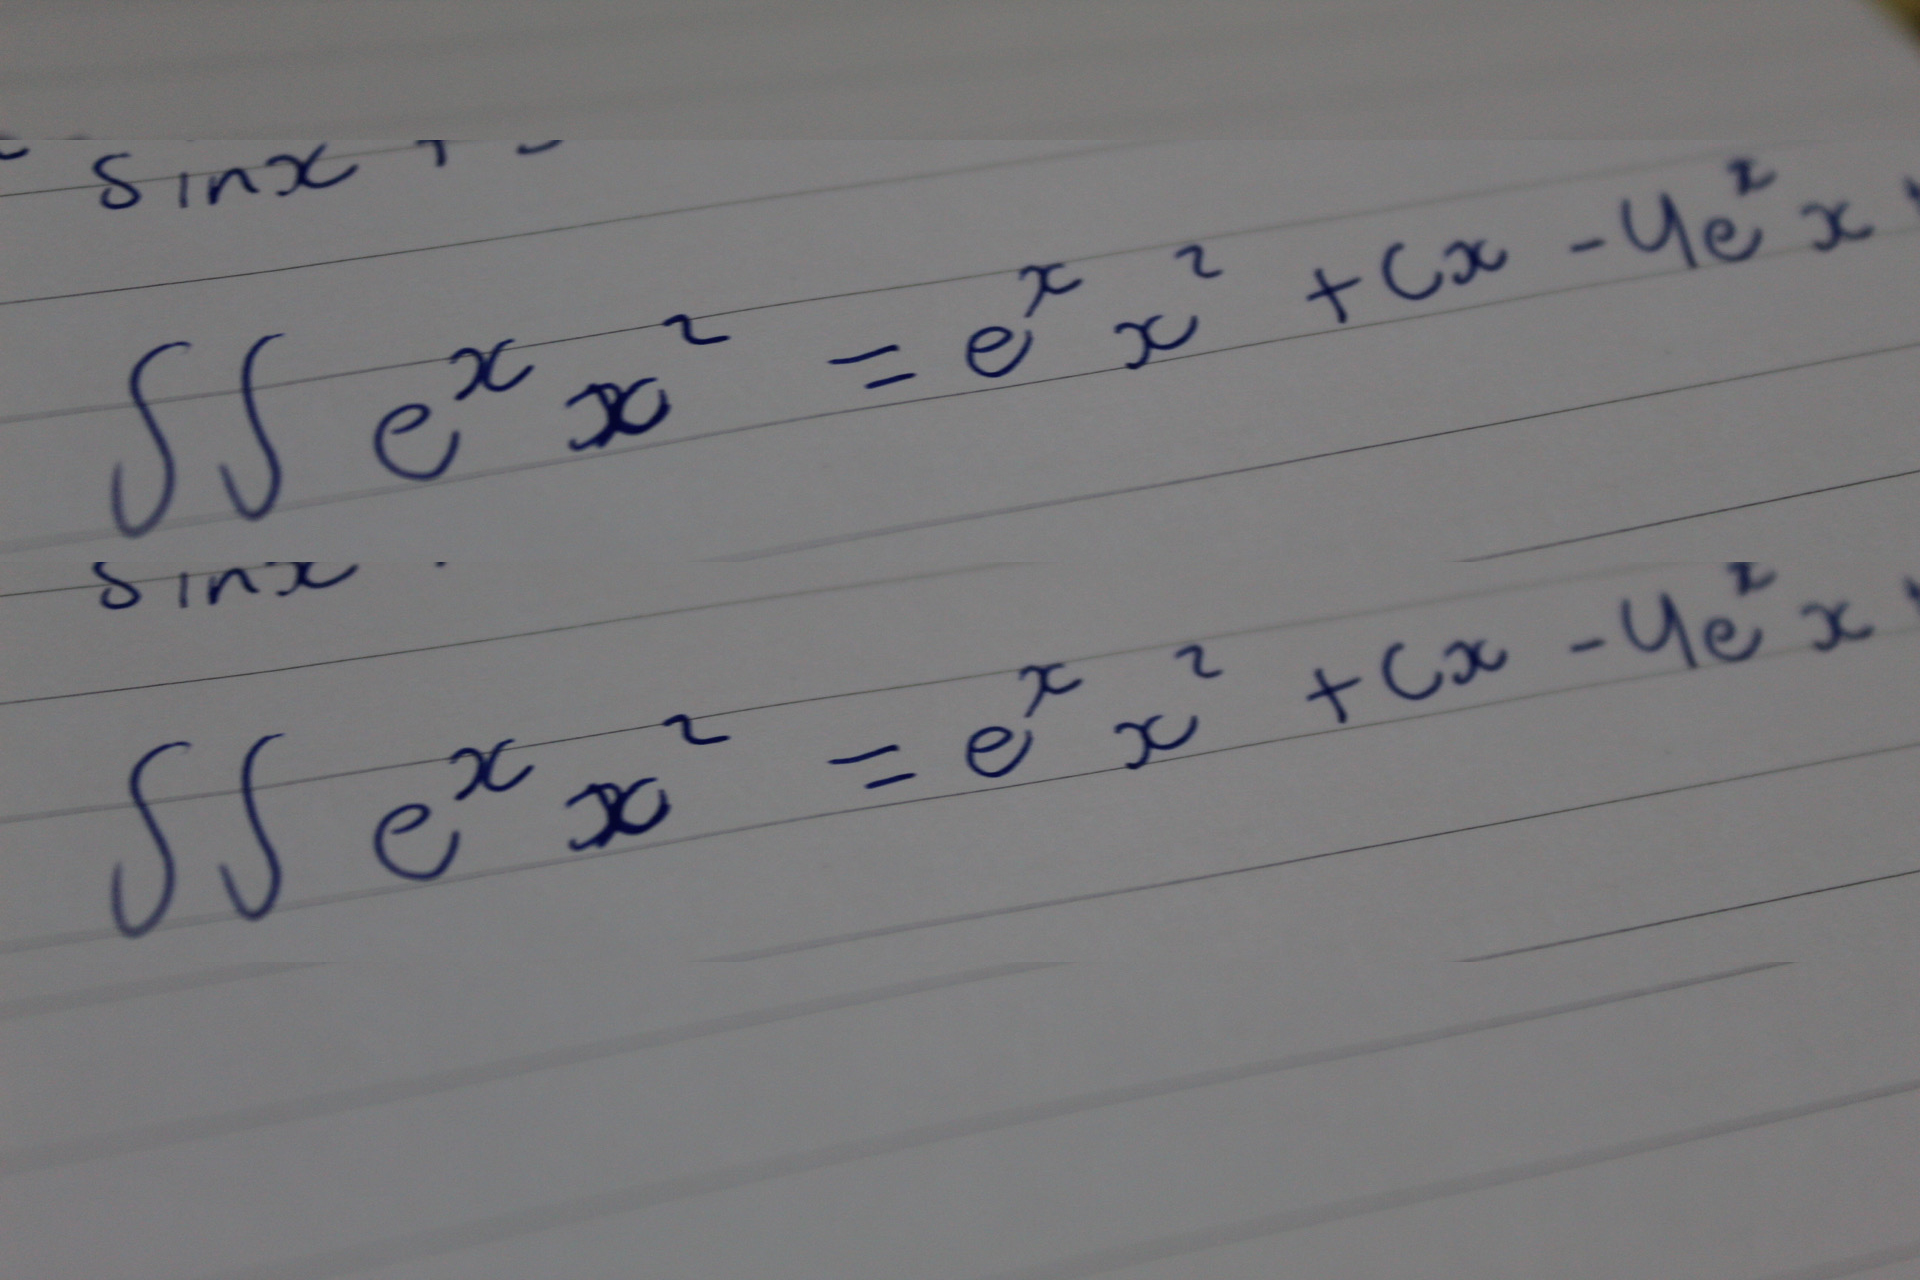 sinx +
∫∫ e^x x^2 = e^x x^2 + Cx - 4e^x x
sinx
∫∫ e^x x^2 = e^x x^2 + Cx - 4e^x x